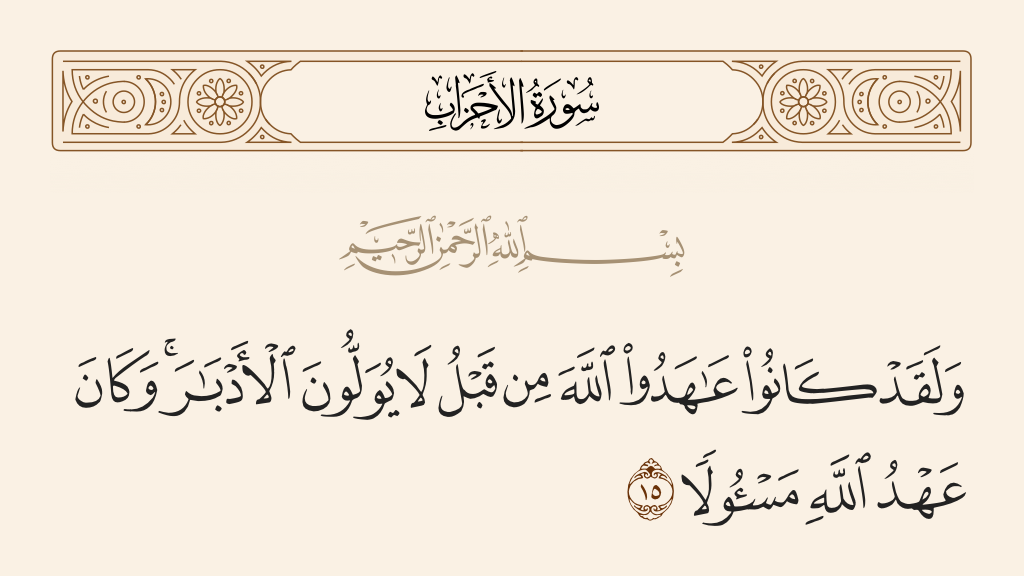 سُورَةُ الأَحْزَابِ
بِسْمِ ٱللَّهِ ٱلرَّحْمَٰنِ ٱلرَّحِيمِ
وَلَقَدْ كَانُوا۟ عَـٰهَدُوا۟ ٱللَّهَ مِن قَبْلُ لَا يُوَلُّونَ ٱلْأَدْبَـٰرَ ۚ وَكَانَ
عَهْدُ ٱللَّهِ مَسْـُٔولًا ١٥